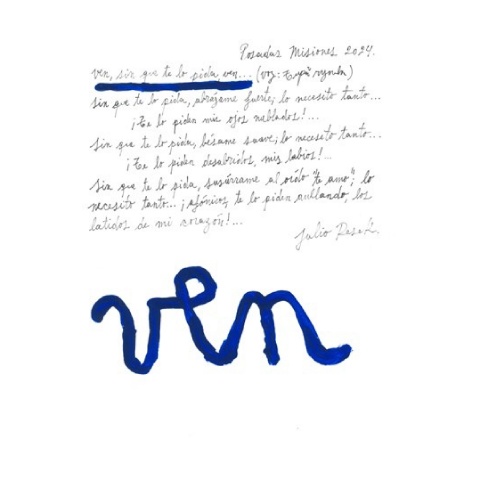 Posadas Misiones 2024.
ven, sin que te lo pida ven... (voz:
sin que te lo pida, abrázame fuerte; lo necesito tanto...
¡te lo piden mis ojos nublados!...
sin que te lo pida, bésame suave; lo necesito tanto...
¡te lo piden desabridos, mis labios!...
sin que te lo pida, susúrrame al oído "te amo"; lo
necesito tanto... ¡afónicos, te lo piden aullando, los
latidos de mi corazón!...
Julio
ven